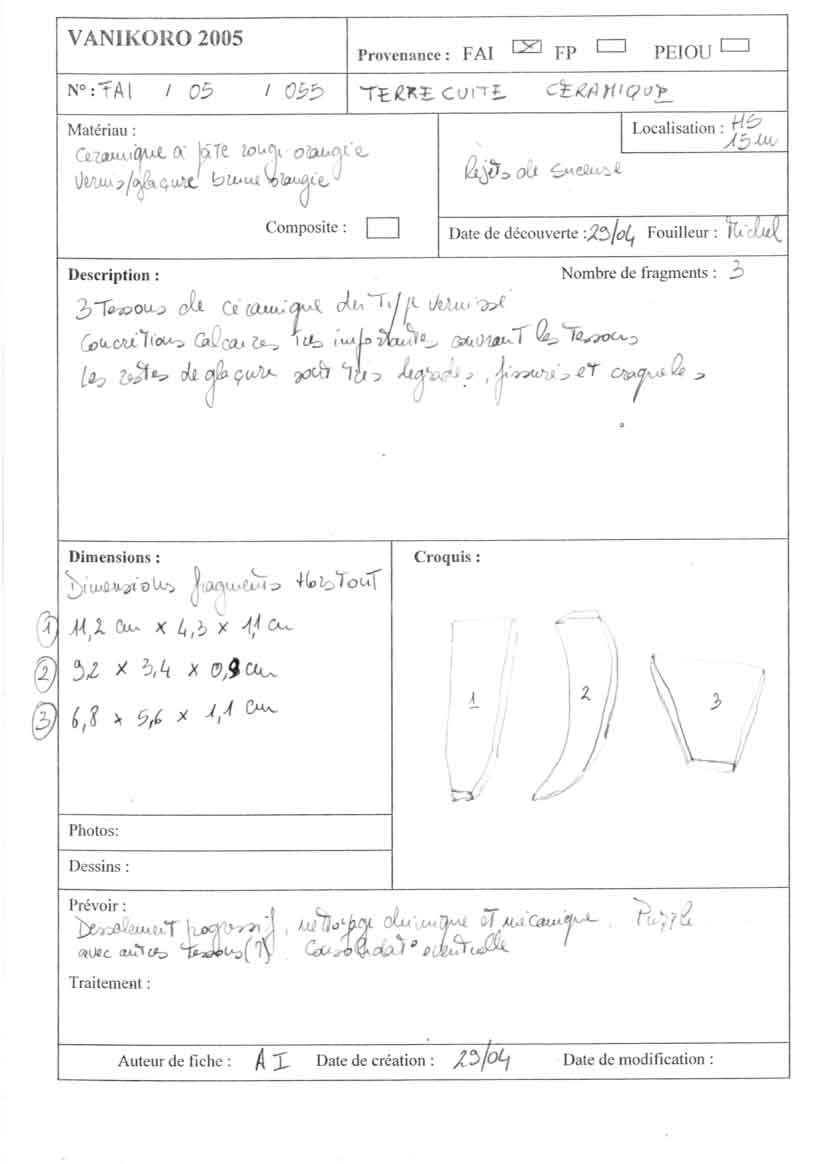 VANIKORO 2005
Provenance : FAI ☒ FP ☐ PEIOU ☐
N° : FAI / 05 / 055
TERRE CUITE CERAMIQUE
Matériau :
Ceramique à pâTe rougi-orangie
Vernis/glaçure brune orangie
Composite : ☐
Localisation : H5
15 m
Rejets de suceuse
Date de découverte : 29/04 Fouilleur : Michel
Description :
Nombre de fragments : 3
3 Tessons de céramique du Type vernissé
Concrétions Calcaires très importantes couvrant les Tessons
Les restes de glaçure sont très degradés, fissurés et craquelés
Dimensions :
Dimensions fragments Hors Tout
① 11,2 cm x 4,3 x 1,1 cm
② 9,2 x 3,4 x 0,9 cm
③ 6,8 x 5,6 x 1,1 cm
Croquis :
1
2
3
Photos:
Dessins :
Prévoir :
Dessalement progressif, nettoyage chimique et mécanique. Puzzle
avec autres Tessons (?). Consolidat° eventuelle
Traitement :
Auteur de fiche : A I Date de création : 29/04 Date de modification :